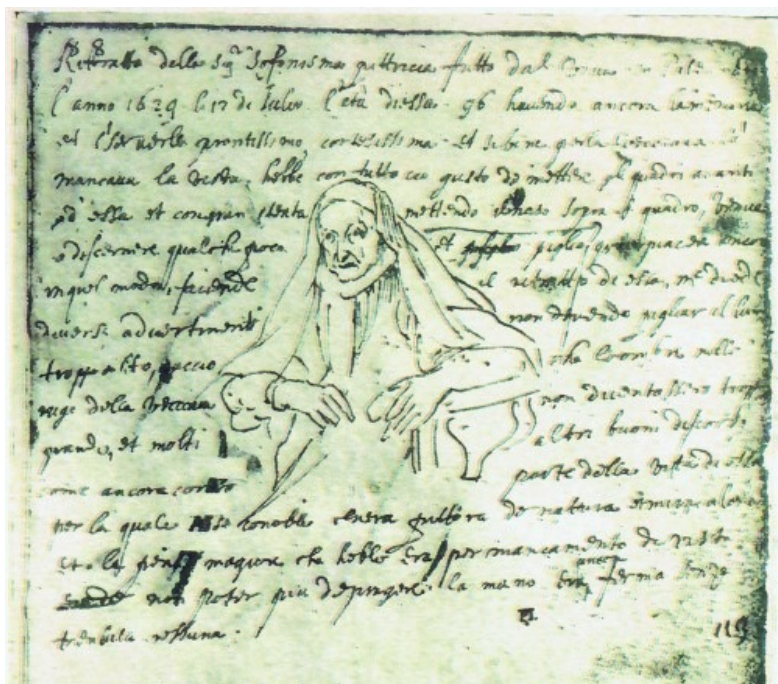 Rittratto della Sig.ra Sofonisma pittricia fatto dal vivo in Palermo
l'anno 1629 li 12 de Julio l'età di essa 96 havendo ancora la memoria
et il servello prontissimo, cortesissima et sibene per la
mancava la vista, hebbe con tutto cio gusto de mettere gli quadri avanti
ad essa et con gran stenta mettendo il naso sopra il quadro, veniva
a discernere qualche poco et piglio gran piacere ancora
in quel modo, facendo il ritratto di essa, me diede
diversi advertimenti non dovendo pigliar il lume
troppo alto, accio che l'ombre nelle
ruge della vecciaia non diventassero troppo
grande, et molti altri buoni discorsi
come ancora conto parte della vita di essa
per la quale se conobbe ch'era pittora de natura et miracolosa
et la pena magiore che hebbe era per mancamento di vista
non poter piu dipingere: la mano era ferma senza
tremula nessuna.